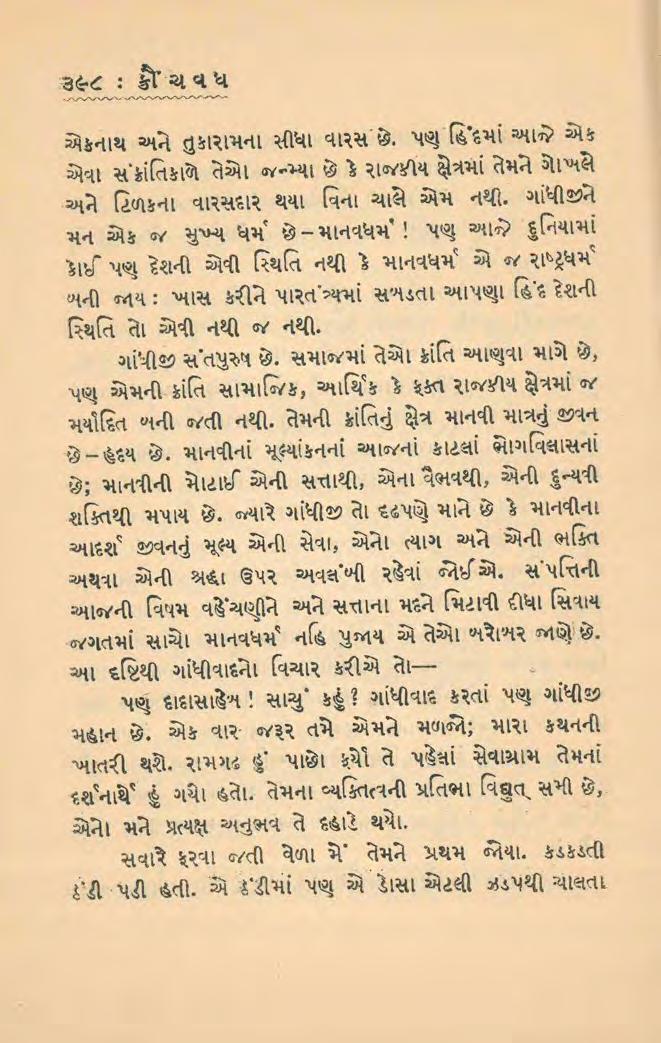 ૩૯૮ : ક્રૌંચવધ
એકનાથ અને તુકારામના સીધા વારસ છે. પણ હિંદમાં આજે એક
એવા સંક્રાંતિકાળે તેઓ જન્મ્યા છે કે રાજકીય ક્ષેત્રમાં તેમને ગોખલે
અને ટિળકના વારસદાર થયા વિના ચાલે એમ નથી. ગાંધીજીને
મન એક જ મુખ્ય ધર્મ છે – માનવધર્મ ! પણ આજે દુનિયામાં
કોઈ પણ દેશની એવી સ્થિતિ નથી કે માનવધર્મ એ જ રાષ્ટ્રધર્મ
બની જાય : ખાસ કરીને પારતંત્ર્યમાં સબડતા આપણા હિંદ દેશની
સ્થિતિ તો એવી નથી જ નથી.
ગાંધીજી સંતપુરુષ છે. સમાજમાં તેઓ ક્રાંતિ આણવા માગે છે,
પણ એમની ક્રાંતિ સામાજિક, આર્થિક કે ફક્ત રાજકીય ક્ષેત્રમાં જ
મર્યાદિત બની જતી નથી. તેમની ક્રાંતિનું ક્ષેત્ર માનવી માત્રનું જીવન
છે – હૃદય છે. માનવીનાં મૂલ્યાંકનનાં આજનાં કાટલાં ભોગવિલાસનાં
છે; માનવીની મોટાઈ એની સત્તાથી, એના વૈભવથી, એની દુન્યવી
શક્તિથી મપાય છે. જ્યારે ગાંધીજી તો દૃઢપણે માને છે કે માનવીના
આદર્શ જીવનનું મૂલ્ય એની સેવા, એનો ત્યાગ અને એની ભક્તિ
અથવા એની શ્રદ્ધા ઉપર અવલંબી રહેવાં જોઈએ. સંપત્તિની
આજની વિષમ વહેંચણીને અને સત્તાના મદને મિટાવી દીધા સિવાય
જગતમાં સાચો માનવધર્મ નહિ પુજાય એ તેઓ બરોબર જાણે છે.
આ દૃષ્ટિથી ગાંધીવાદનો વિચાર કરીએ તો—
પણ દાદાસાહેબ ! સાચું કહું ? ગાંધીવાદ કરતાં પણ ગાંધીજી
મહાન છે. એક વાર જરૂર તમે એમને મળજો; મારા કથનની
ખાતરી થશે. રામગઢ હું પાછો ફર્યો તે પહેલાં સેવાગ્રામ તેમનાં
દર્શનાર્થે હું ગયો હતો. તેમના વ્યક્તિત્વની પ્રતિભા વિદ્યુત્ સમી છે,
એનો મને પ્રત્યક્ષ અનુભવ તે દહાડે થયો.
સવારે ફરવા જતી વેળા મેં તેમને પ્રથમ જોયા. કડકડતી
ઠંડી પડી હતી. એ ઠંડીમાં પણ એ ડોસા એટલી ઝડપથી ચાલતા